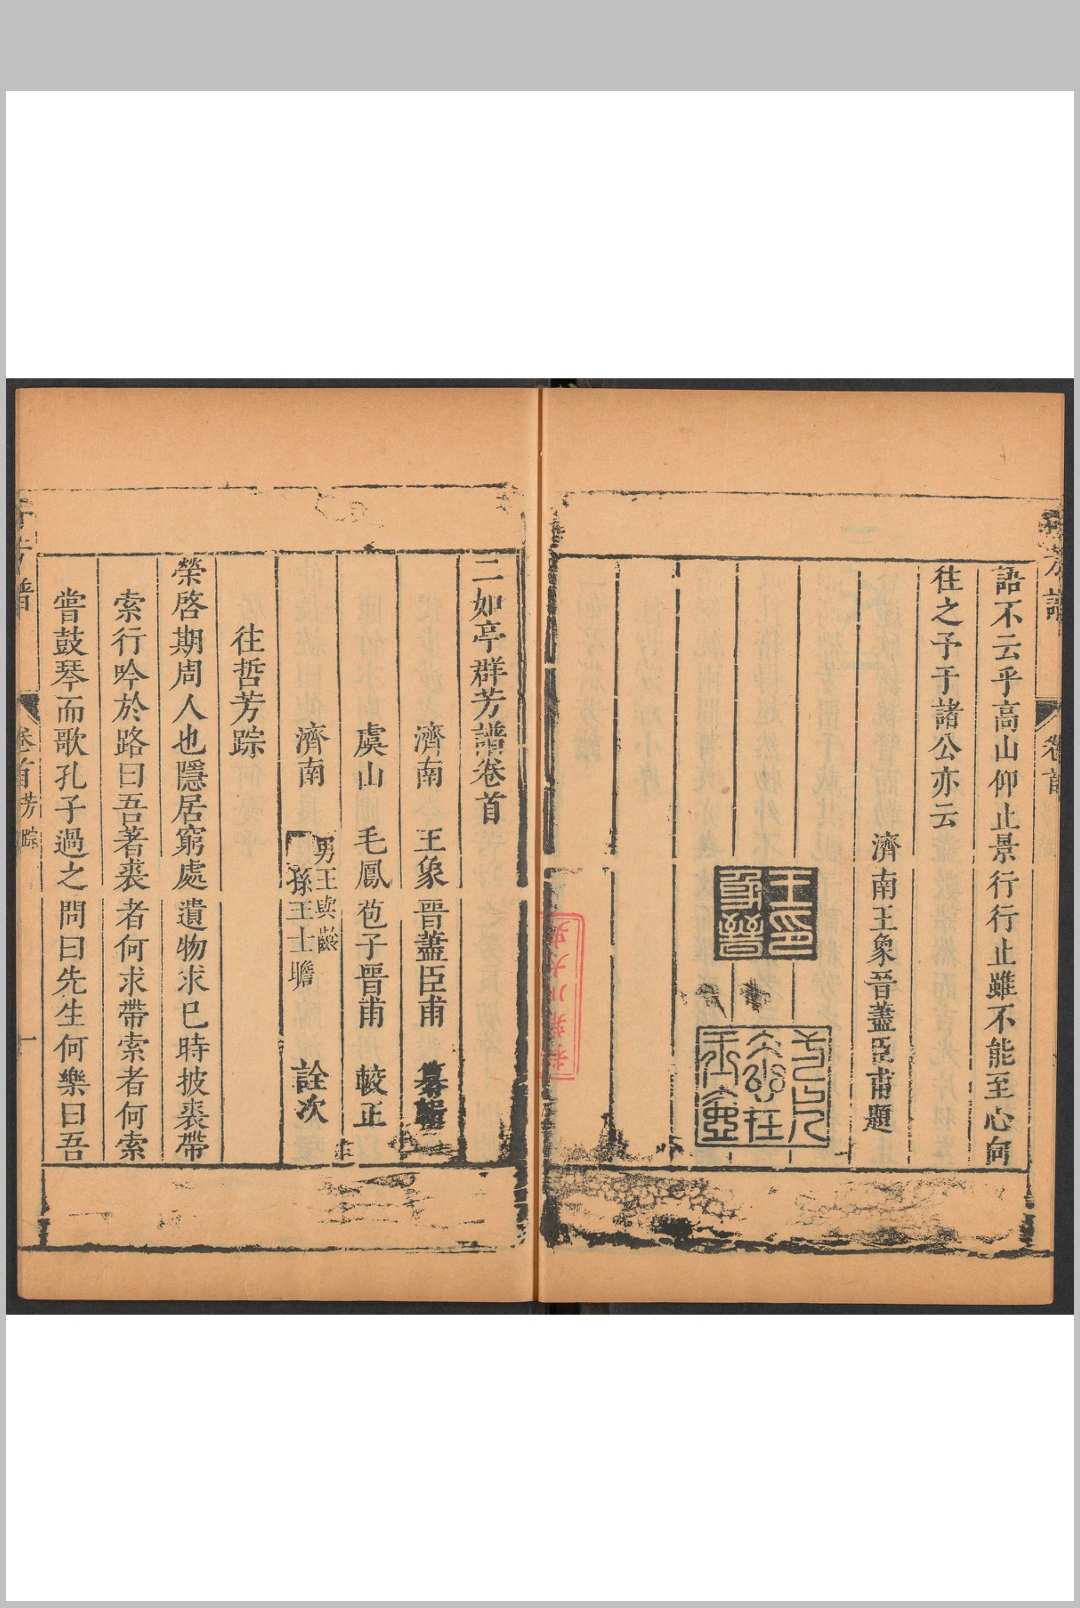 語不云乎高山仰止景行行止雖不能至心向
往之予于諸公亦云
濟南王象晉藎臣甫題
王象晉印
二如亭群芳譜卷首
濟南 王象晉藎臣甫 纂輯
虞山 毛鳳苞子晉甫 較正
濟南 男王與齡
孫王士瞻 詮次
往哲芳踪
榮啓期周人也隱居窮處遺物求已時披裘帶
索行吟於路曰吾著裘者何求帶索者何索
嘗鼓琴而歌孔子過之問曰先生何樂曰吾
卷首 芳踪 一